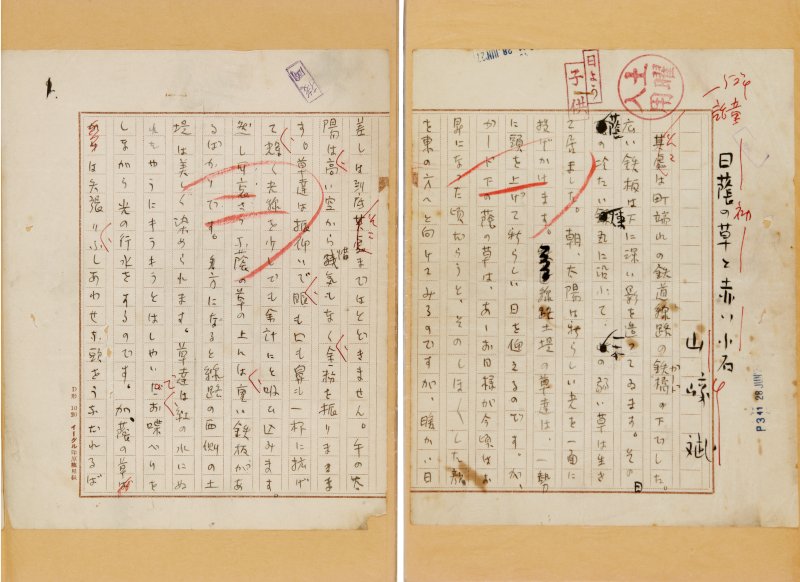 童話
日蔭の草と赤い小石
山﨑 斌
日よう
子供
土曜
夕
P341 28 JUIN
其處は町端れの鉄道線路の鉄橋の下でした。
広い鉄板は下に深い影を造つてゐます。その
蔭の冷たい煉瓦に沿ふて一本の弱い草は生き
て居ました。朝、太陽は新らしい光を一面に
投げかけます。線路土堤の草達は、一勢
に頭を上げて新らしい日を迎えるのです。が、
ガード下の蔭の草は、あゝお日様が今頃はお
昇になつた頃だらうと、そのしほ〳〵した頭
を東の方へと向けてみるのですが、暖かい日
差しは到底其處まではとどきません。午の太
陽は高い空から惜気もなく金粉を振りまきま
す。草達は振仰いで眼も口も鼻も一杯に拡げ
て輝く光線を少しでも余計にと吸ひ込みます。
然し可哀さうな蔭の草の上には重い鉄板があ
るばかりです。夕方になると線路の西側の土
堤は美しく染められます。草達は紅の水にぬ
れたやうにキラキラとはしやいでお喋べりを
しながら光の行水をするのです。が、蔭の草は
矢張りふしあわせな頭をうなだれるば
D形 10割 イーグル印原稿用紙